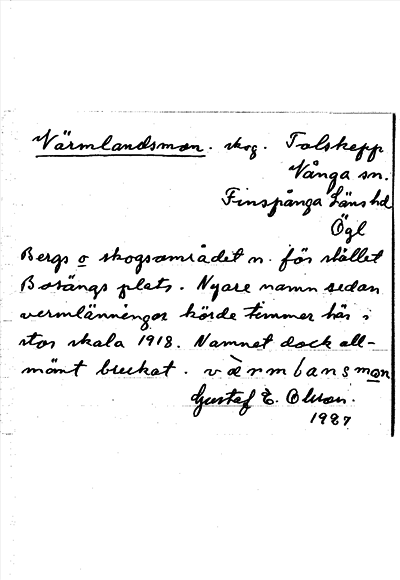 Värmlandsmon. skog. Tolskepp
Vånga sn.
Finspånga läns hd
Ögl
Bergs o skogsområdet n. för stället
Botängs plats. Nyare namn sedan
vermlänningar körde timmer här i
stor skala 1918. Namnet dock all-
mänt brukat. värmlansmon
Gustaf E. Olsson.
1927